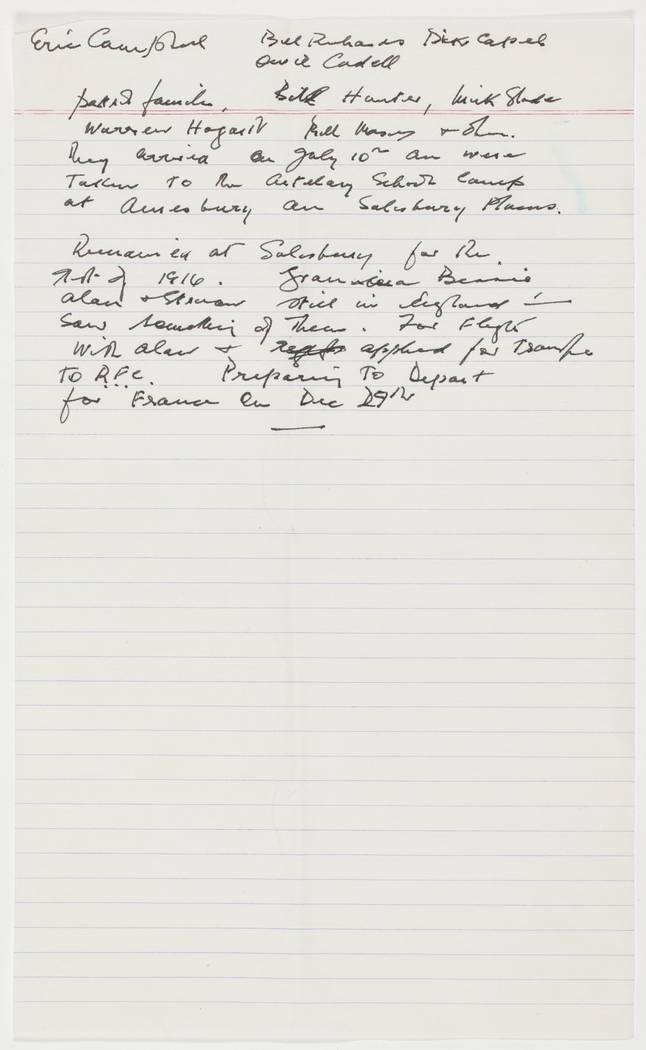 Eric Campbell Bill Richards Dick Cassels
Cadell
Bill Hunter, Mick Slade
Warren Hogarth Bill Mason +
They arrived on July 10th an were
Taken To the Artelary School Camp
at Amesbury on Salesbury Plains.
Remained at Salesbury for the
of 1916. Bessie
alan + still in England —
Saw something of Them. For Flight
With alan + applied for Transfer
To R.F.C. Preparing To Depart
for France On Dec 29th